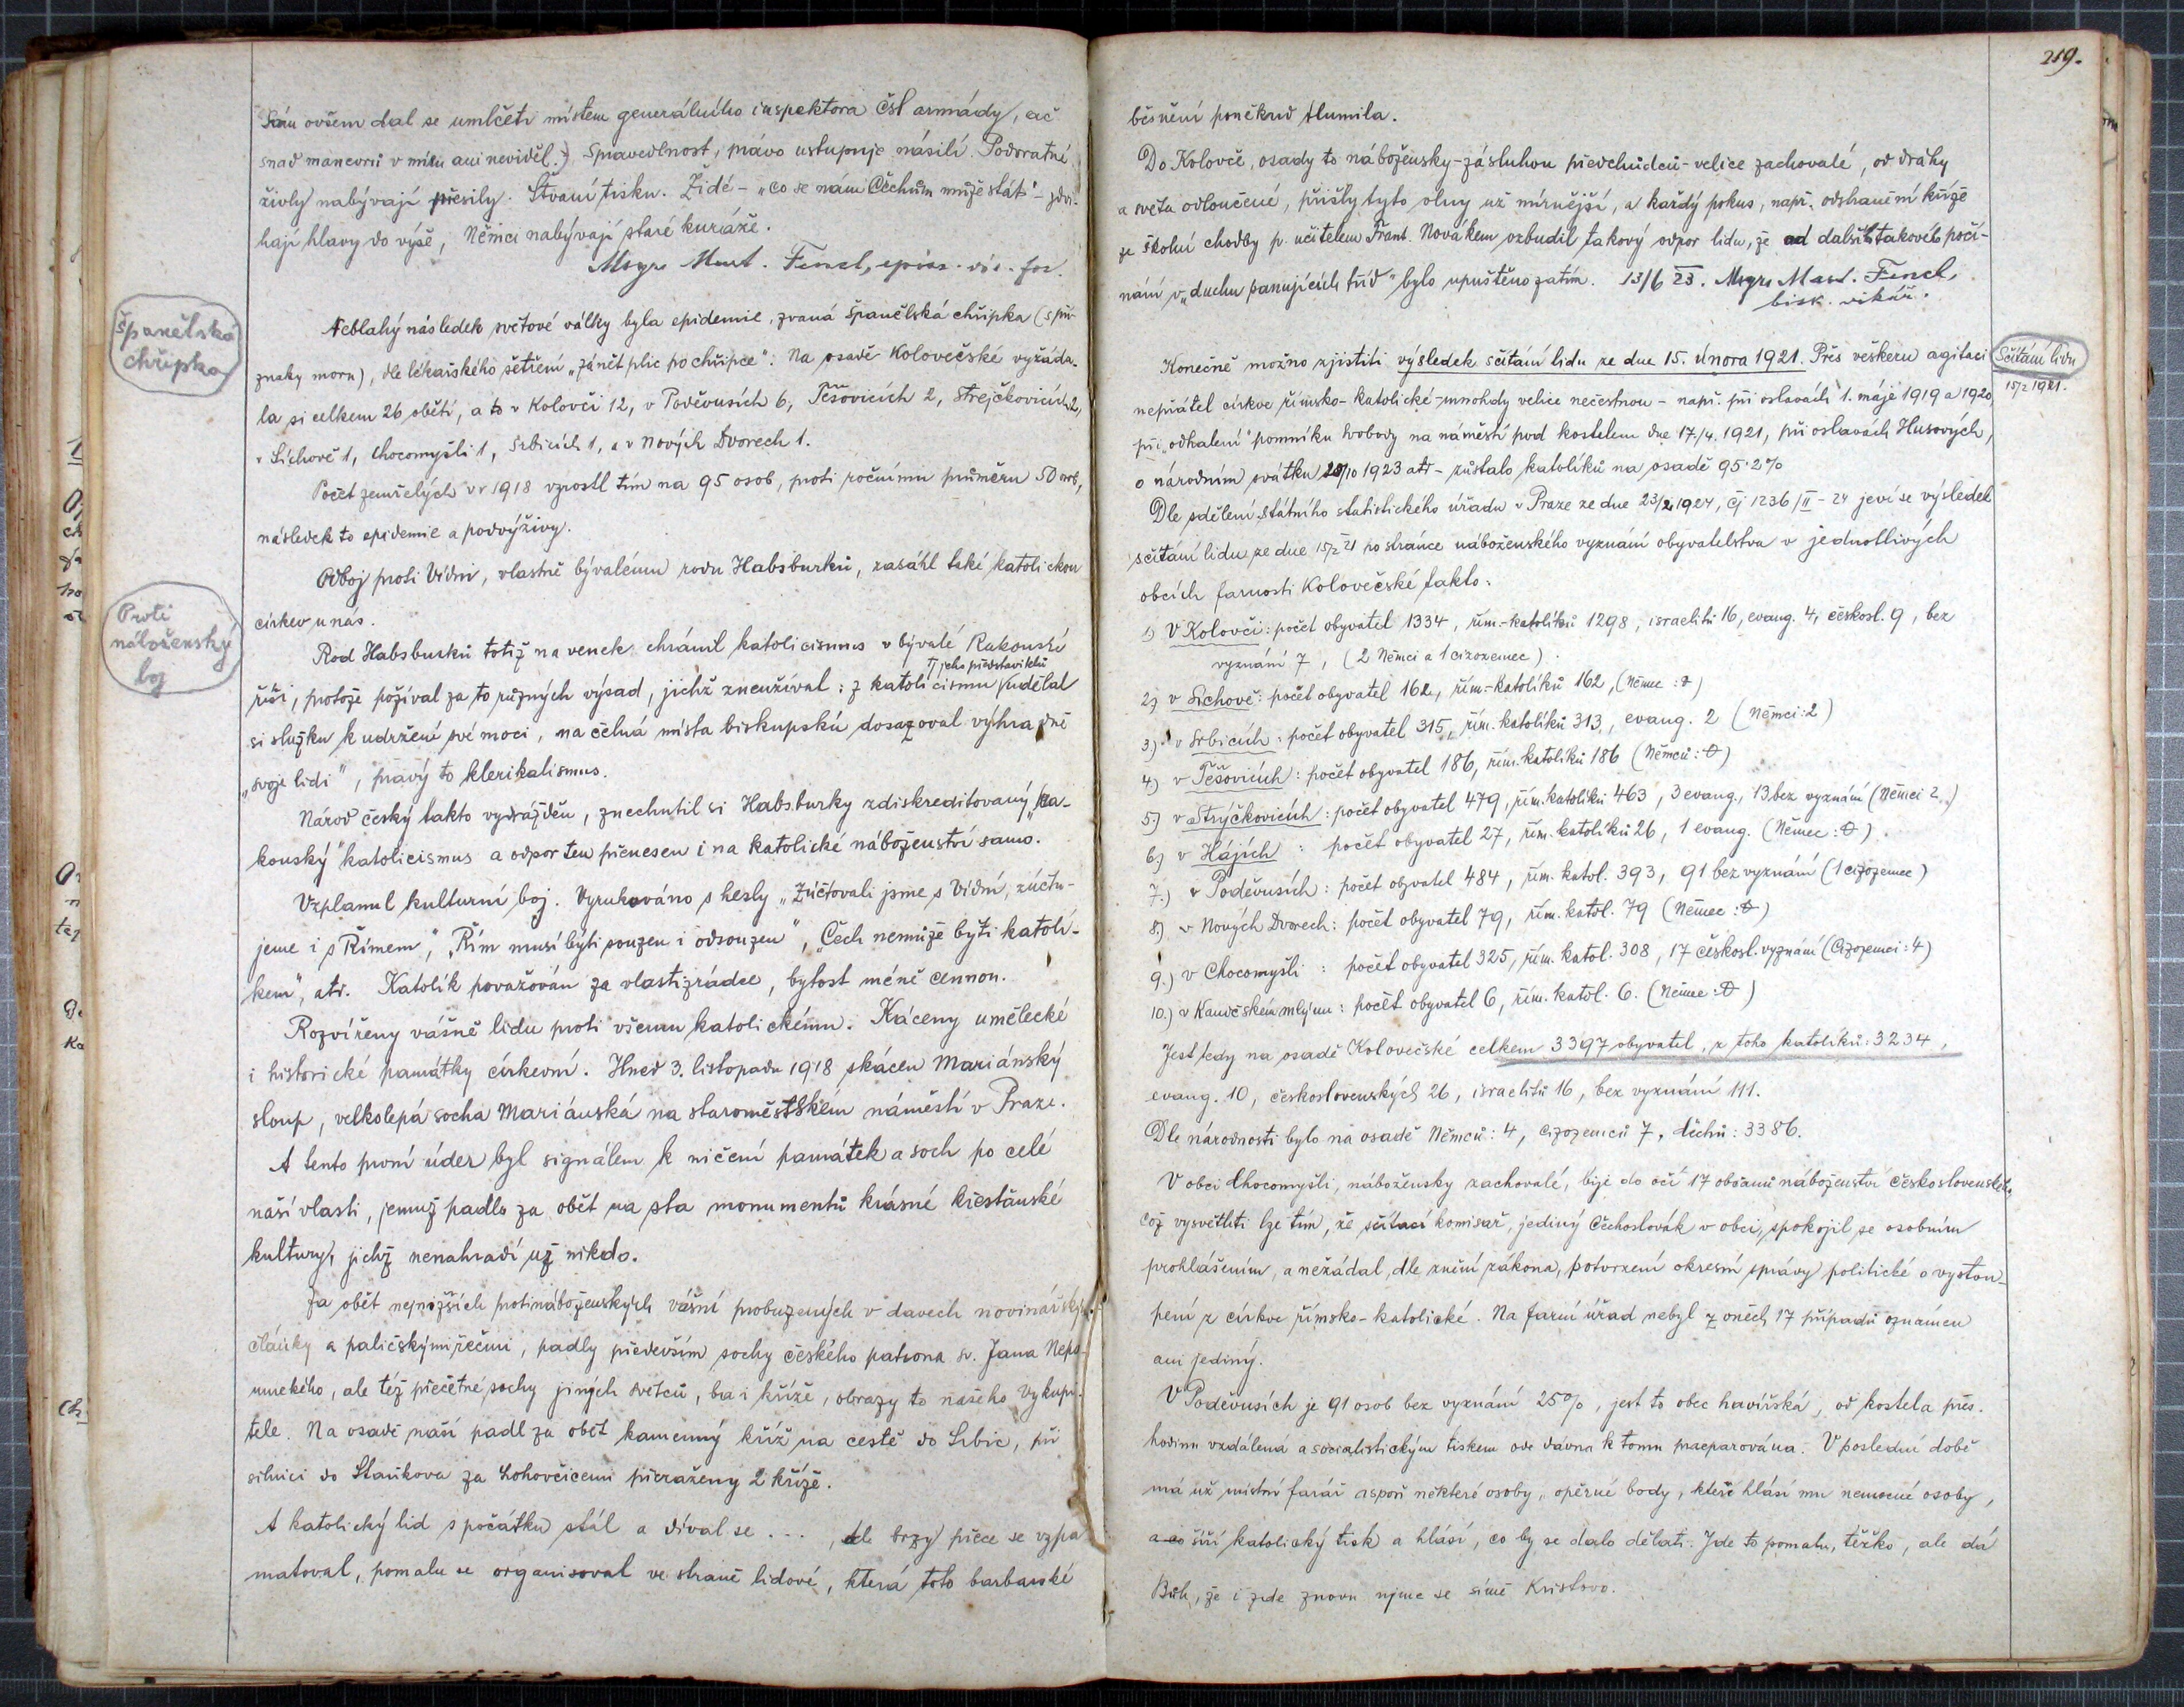 Sám ovšem dal se umlčeti místem generálního inspektora čsl armády, ač
snad manevrů v míru ani neviděl.) Spravedlnost, právo ustupuje násilí. Podvratné
živly nabývají přesily. Štvaní tisku. Židé - „co se nám Čechům může státi" - zdvi-
hají hlavy do výše, Němci nabývají staré kuráže.
Msgre Mart. Fencl, episc. vic. for.
Španělská
chřipka
Neblahý následek světové války byla epidemie, zvaná španělská chřipka (s pří-
znaky moru), dle lékařského šetření „zánět plic po chřipce". Na osadě Kolovečské vyžáda-
la si celkem 26 obětí, a to v Kolovči 12, v Poděvousích 6, Těšovicích 2, Strejčkovicích 2,
v Sichově 1, Chocomyšli 1, Srbicích 1, a v Nových Dvorech 1.
Počet zemřelých v r 1918 vzrostl tím na 95 osob, proti ročnímu průměru 50 osob,
následek to epidemie a podvýživy.
Odboj proti Vídni, vlastně bývalému rodu Habsburků, zasáhl také katolickou
církev u nás.
Proti
náboženský
boj
Rod Habsburků totiž na venek chránil katolicismus v bývalé Rakouské
tj jeho představitelů
říši, protože požíval za to různých výsad, jichž zneužíval: z katolicismu udělal
si služku k udržení své moci, na čelná místa biskupská dosazoval výhradně
„svoje lidi", pravý to klerikalismus.
Národ český takto vydrážděn, znechutil si Habsburky zdiskreditovaný „ra-
kouský" katolicismus a odpor ten přenesen i na katolické náboženství samo.
Vzplanul kulturní boj. Vyrukováno s hesly „Zúčtovali jsme s Vídní, zúčtu-
jeme i s Římem", „Řím musí býti souzen i odsouzen", „Čech nemůže býti katolí-
kem", atd. Katolík považován za vlastizrádce, bytost méně cennou.
Rozvířeny vášně lidu proti všemu katolickému. Káceny umělecké
i historické památky církevní. Hned 3. listopadu 1918 skácen Mariánský
sloup, velkolepá socha Mariánská na staroměstském náměstí v Praze.
A tento první úder byl signálem k ničení památek a soch po celé
naší vlasti, jemuž padlo za oběť na sta monumentů krásné křesťanské
kultury, jichž nenahradí už nikdo.
Za oběť nejnižších protináboženských vášní probuzených v davech novinářskými
články a paličskými řečmi, padly především sochy českého patrona sv. Jana Nepo-
muckého, ale též přečetné sochy jiných světců, ba i kříže, obrazy to našeho Vykupi-
tele. Na osadě naší padl za oběť kamenný kříž na cestě do Srbic, při
silnici do Staňkova za Lohovčicemi přeraženy 2 kříže.
A katolický lid s počátku stál a díval se ... , ale brzy přece se vzpa
matoval, pomalu se organisoval ve straně lidové, která toto barbarské
219.
běsnění poněkud tlumila.
Do Kolovče, osady to nábožensky - zásluhou předchůdců - velice zachovalé, od dráhy
a světa odloučené, přišly tyto vlny už mírnější, a každý pokus, např. odstranění kříže
ze školní chodby p. učitelem Frant. Novákem vzbudil takový odpor lidu, že od dalšího takového počí-
nání v „duchu panujících tříd" bylo upuštěno zatím. 13/6 23. Msgre Mart. Fencl,
bisk. vikář.
Sčítání lidu
15/2 1921.
Konečně možno zjistiti výsledek sčítání lidu ze dne 15. února 1921. Přes veškeru agitaci
nepřátel církve římsko-katolické - mnohdy velice nečestnou - např. při oslavách 1. máje 1919 a 1920,
při „odhalení" pomníku svobody na náměstí pod kostelem dne 17./4. 1921, při oslavách Husových,
o národním svátku 28/10 1923 atd - zůstalo katolíků na osadě 95·2%
Dle sdělení státního statistického úřadu v Praze ze dne 23/2 1924, čj 1236/II - 24 jeví se výsledek
sčítání lidu ze dne 15/2 21 po stránce náboženského vyznání obyvatelstva v jednotlivých
obcích farnosti Kolovečské takto:
1) V Kolovči: počet obyvatel 1334, řím.-katolíků 1298, israelitů 16, evang. 4, českosl. 9, bez
vyznání 7, (2 Němci a 1 cizozemec).
2) v Sichově: počet obyvatel 162, řím.-katolíků 162, (Němec: 0)
3.) v Srbicích: počet obyvatel 315, řím. katolíků 313, evang. 2 (Němci: 2)
4) v Těšovicích: počet obyvatel 186, řím. katolíků 186 (Němců: 0)
5.) v Strýčkovicích: počet obyvatel 479, řím. katolíků 463, 3 evang., 13 bez vyznání (Němci 2.)
6.) v Hájích: počet obyvatel 27, řím. katolíků 26, 1 evang. (Němec: 0).
7.) v Poděvousích: počet obyvatel 484, řím. katol. 393, 91 bez vyznání (1 cizozemec)
8.) v Nových Dvorech: počet obyvatel 79, řím. katol. 79 (Němec: 0)
9.) v Chocomyšli: počet obyvatel 325, řím. katol. 308, 17 českosl. vyznání (Cizozemci: 4)
10.) v Kaničském mlýnu: počet obyvatel 6, řím. katol. 6. (Němec: 0)
Jest tedy na osadě Kolovečské celkem 3397 obyvatel, z toho katolíků: 3234,
evang. 10, československých 26, israelitů 16, bez vyznání 111.
Dle národnosti bylo na osadě Němců: 4, Cizozemců 7, Čechů: 3386.
V obci Chocomyšli, nábožensky zachovalé, bije do očí 17 občanů náboženství československého,
což vysvětliti lze tím, že sčítací komisař, jediný Čechoslovák v obci, spokojil se osobním
prohlášením, a nežádal, dle znění zákona, potvrzení okresní správy politické o vystou-
pení z církve římsko-katolické. Na farní úřad nebyl z oněch 17 případů oznámen
ani jediný.
V Poděvousích je 91 osob bez vyznání 25%, jest to obec havířská, od kostela přes
hodinu vzdálená a socialistickým tiskem ode dávna k tomu praeparována. V poslední době
má už místní farář aspoň některé osoby, opěrné body, které hlásí mu nemocné osoby,
a co šíří katolický tisk a hlásí, co by se dalo dělati. Jde to pomalu, těžko, ale dá
Bůh, že i zde znovu ujme se símě Kristovo.